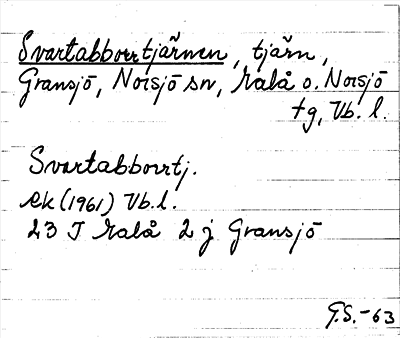 Svartabborrtjärnen, tjärn,
Gransjö, Norsjö sn, Malå o. Norsjö
tg, Vb. l.
Svartabborrtj.
ek (1961) Vb. l.
23 J Malå 2 j Gransjö
G.S. -63